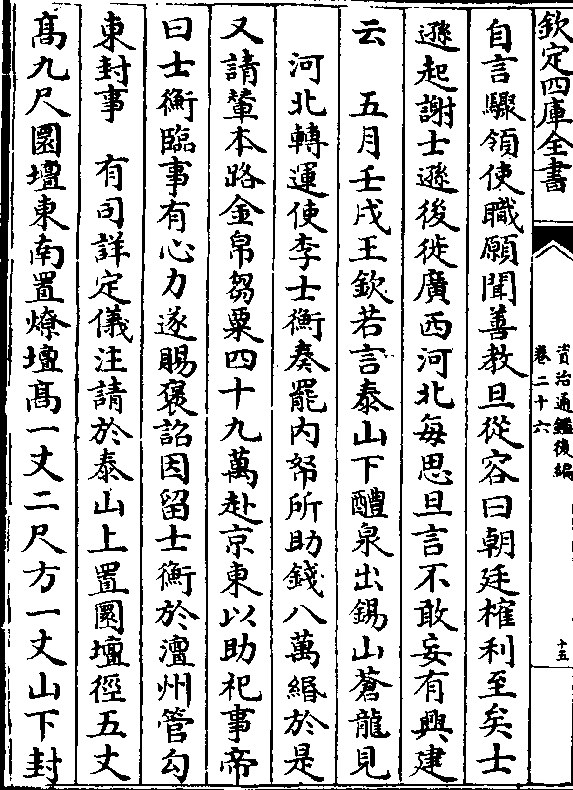 欽定四庫全書
資治通鑑後編
卷二十六
十五
自言驟領使職願聞善教旦從容曰朝廷榷利至矣士
遜起謝士遜後徙廣西河北每思旦言不敢妄有興建
云　五月壬戌王欽若言泰山下醴泉出錫山蒼龍見
河北轉運使李士衡奏罷内帑所助錢八萬緡於是
又請輦本路金帛芻粟四十九萬赴京東以助祀事帝
曰士衡臨事有心力遂賜褒詔因留士衡於澶州管勾
東封事　有司詳定儀注請於泰山上置圜壇徑五丈
髙九尺圜壇東南置燎壇髙一丈二尺方一丈山下封